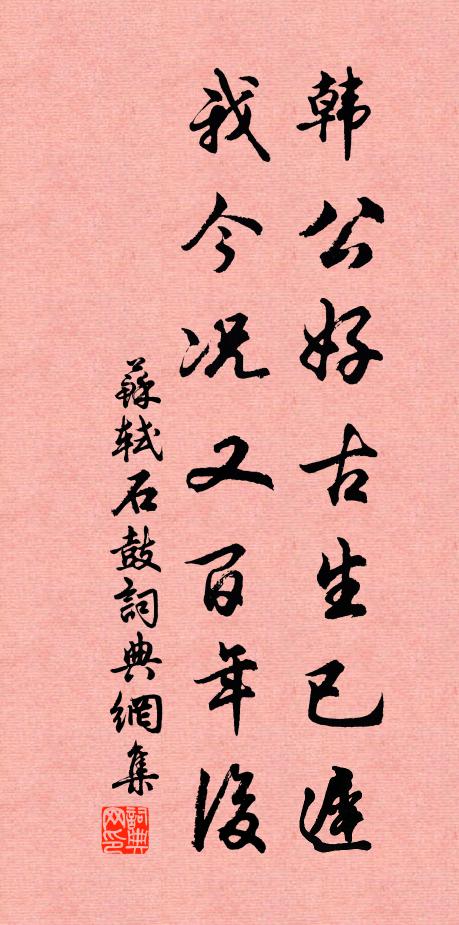 韩公好古生已遲
我今况又百年後
蘇軾石鼓詞典網集
詞典网印